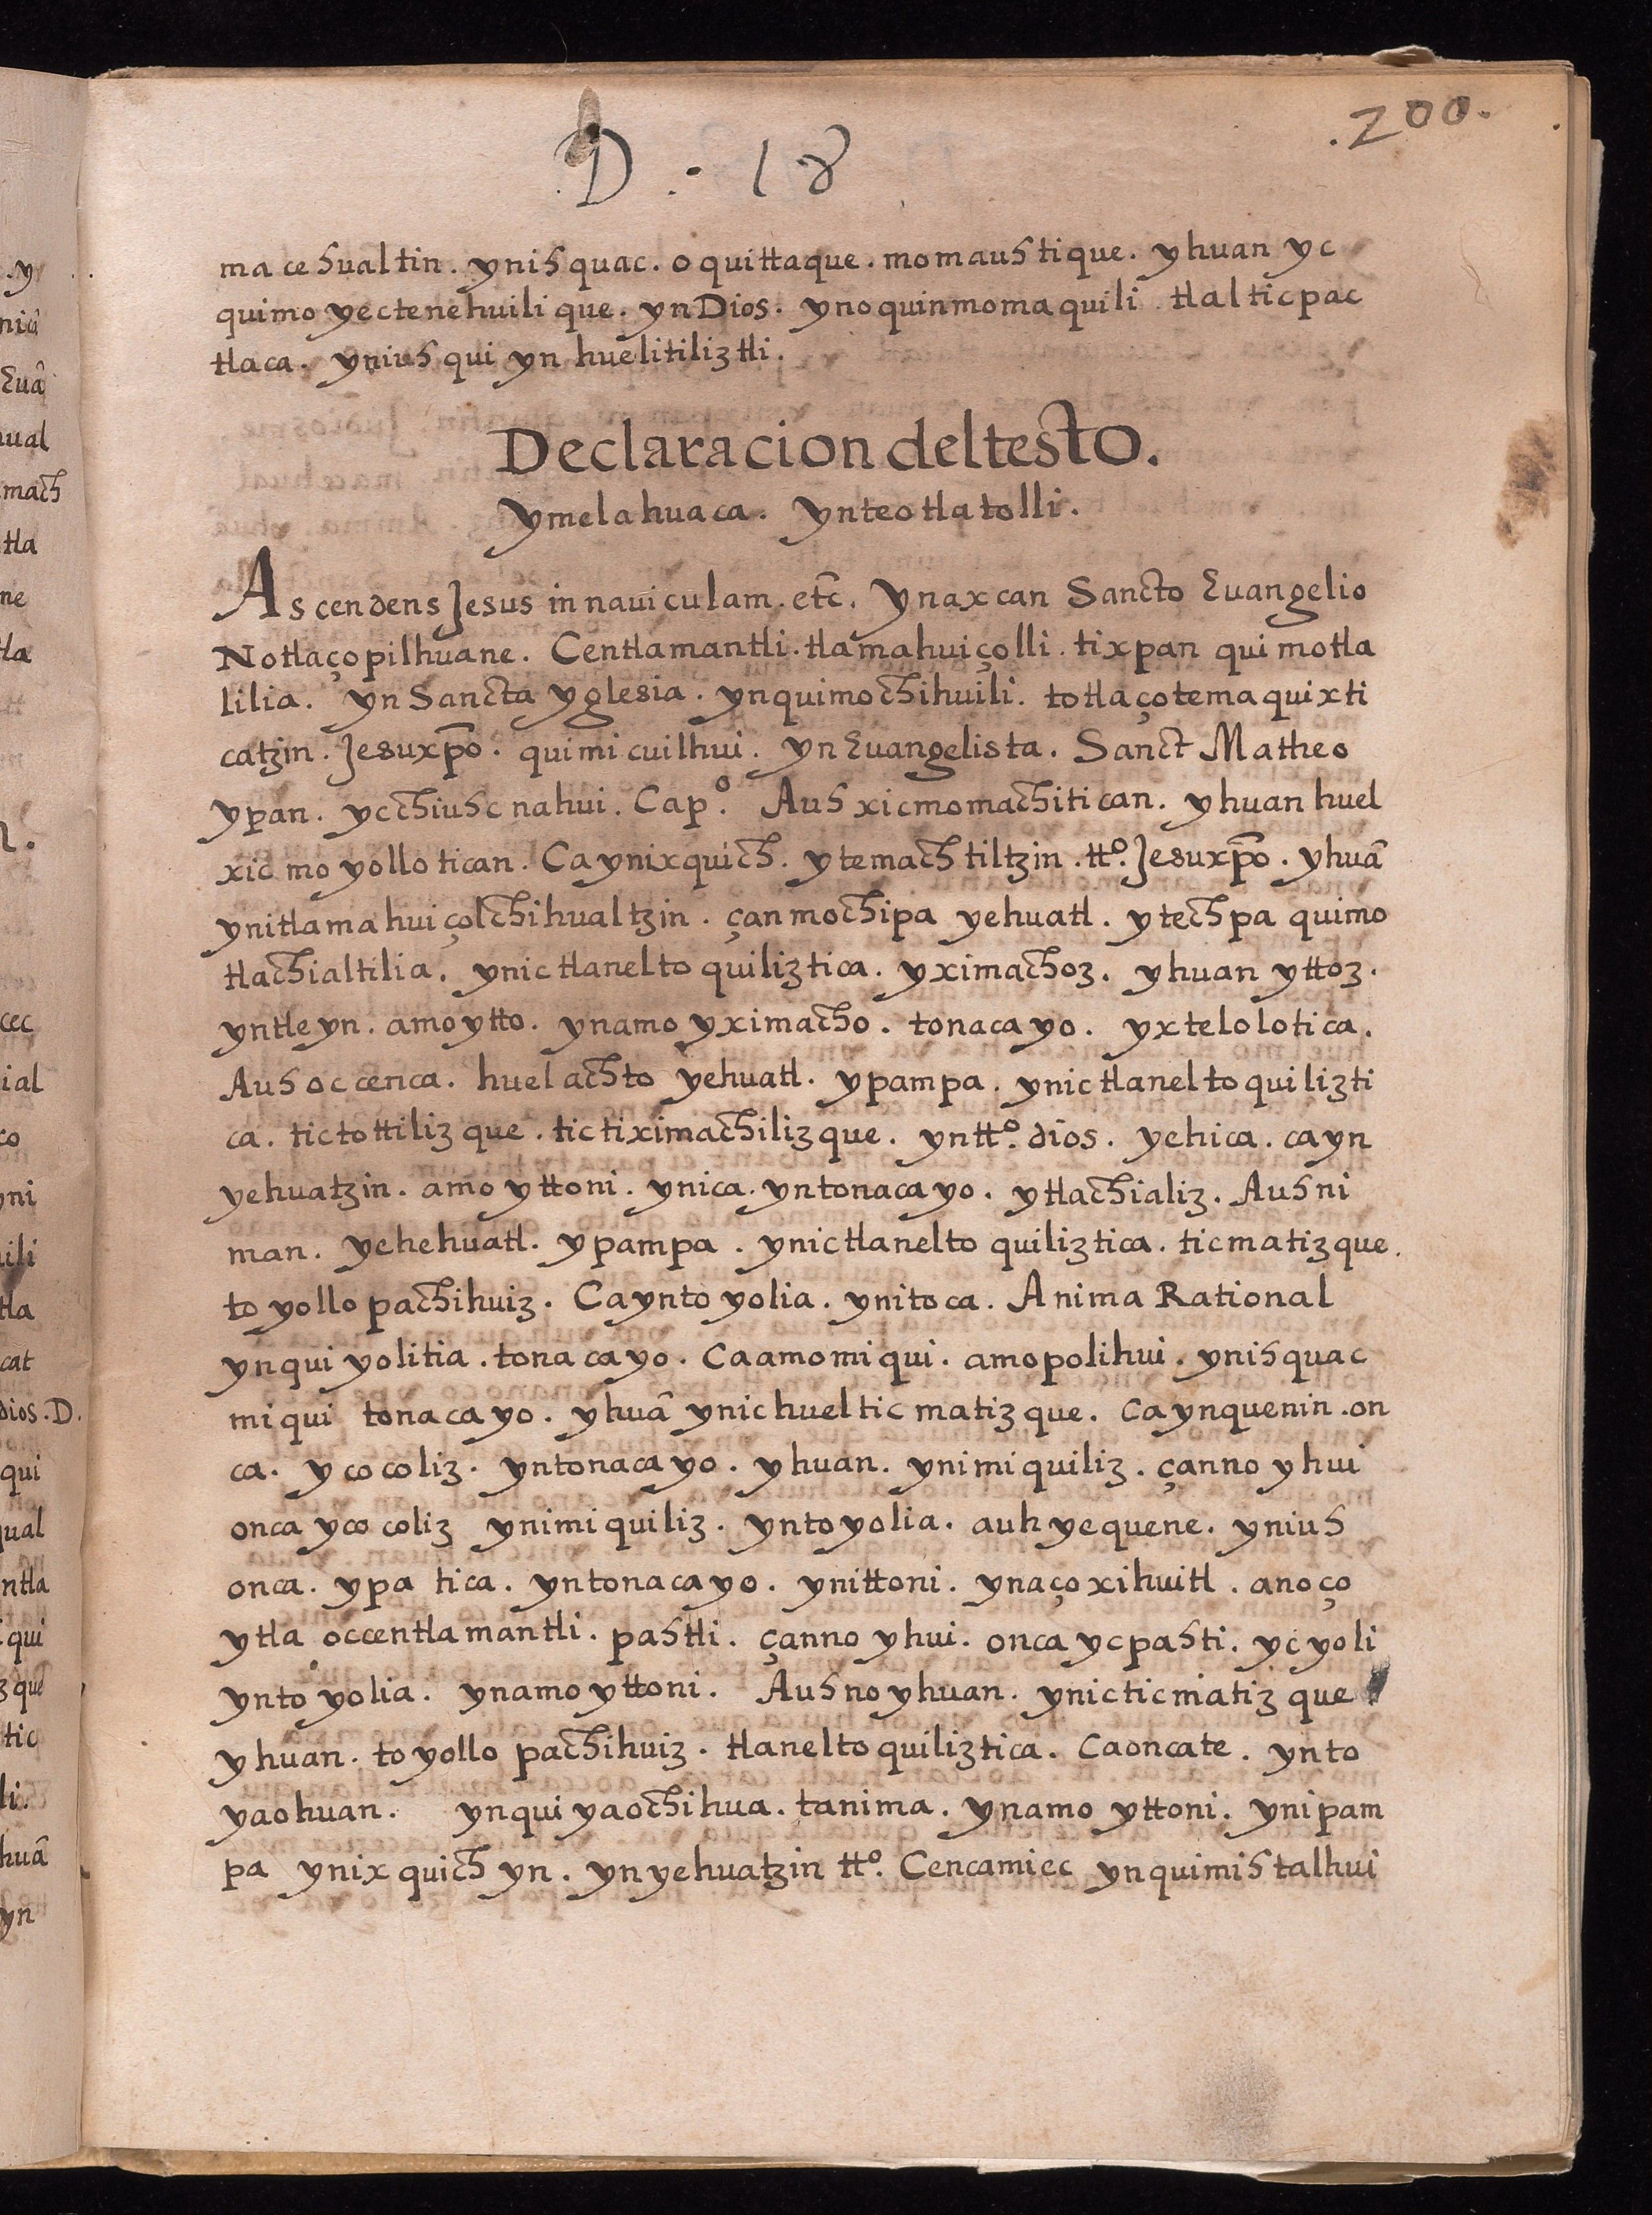 .200.
D.:18
macehualtin. ynihquac. oquittaque. momauhtique. yhuan yc
quimoyectenehuilique. yn Dios. ynoquinmomaquili tlalticpac
tlaca. yniuhqui yn huelitiliztli.
Declaracion deltesto.
ymelahuaca. ynteotlatolli.
Ascendens Jesus in nauiculam. etc̄. ynaxcan Sancto Euangelio
Notlaçopilhuane. Centlamantli. tlamahuiçolli. tixpan quimotla
lilia. yn Sancta yglesia. ynquimochihuili. totlaçotemaquixti
catzin. Jesuxp̄o. quimicuilhui. yn Euangelista. Sanct Mattheo
ypan. ycchiuhcnahui. Cap.º Auh xicmomachitican. yhuan huel
xicmoyollotican. Caynixquich. ytemachtiltzin. ttº. Jesuxp̄o. yhuā
ynitlamahuiçolchihualtzin. çanmochipa yehuatl. ytechpa quimo
tlachialtilia. ynictlaneltoquiliztica. yximachoz. yhuan yttoz.
yntleyn. amoytto. ynamo yximacho. tonacayo. yxtelolotica.
Auh occenca. huelachto yehuatl. ypampa. ynictlaneltoquilizti
ca. tictottilizque. tictiximachilizque. ynttº. dios. yehica. cayn
yehuatzin. amo yttoni. ynica. yntonacayo. ytlachializ. Auhni
man. yehehuatl. ypampa. ynictlaneltoquiliztica. ticmatizque.
toyollopachihuiz. Cayntoyolia. ynitoca. Anima Rational
ynquiyolitia. tonacayo. Caamomiqui. amopolihui. ynihquac
miqui tonacayo. yhuā ynichuelticmatizque. Caynquenin. on
ca. ycocoliz. yntonacayo. yhuan. ynimiquiliz. çanno yhui
onca ycocoliz ynimiquiliz. yntoyolia. auh yequene. yniuh
onca. ypatica. yntonacayo. ynittoni. ynaçoxihuitl. anoço
ytla occentlamantli. pahtli. çanno yhui. onca ycpahti. ycyoli
yntoyolia. ynamo yttoni. Auhnoyhuan. ynicticmatizque
yhuan. toyollo pachihuiz. tlaneltoquiliztica. Caoncate. ynto
yaohuan. ynquiyaochihua. tanima. ynamo yttoni. ynipam
pa ynixquich yn. ynyehuatzin ttº. Cencamiec ynquimihtalhui